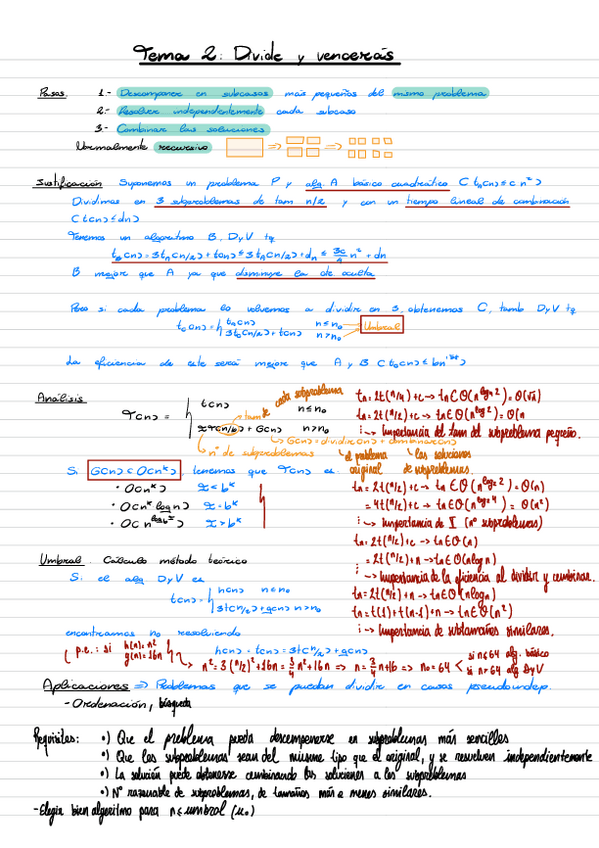 Tema 2: Divide y vencerás
Pasos: 1.- Descomponer en subcasos más pequeños del mismo problema
2.- Resolver independientemente cada subcaso
3.- Combinar las soluciones
Normalmente recursivo
Justificación Suponemos un problema P y alg. A básico cuadrático (tA(n)≤c n²)
Dividimos en 3 subproblemas de tam n/2 y con un tiempo lineal de combinación
(t(n)≤dn)
Tenemos un algoritmo B, DyV tq
tB(n) = 3tA(n/2)+t(n) ≤ 3tA(n/2)+dn ≤ 3c/4 n² + dn
B mejor que A ya que disminuye la cte oculta
Pero si cada problema lo volvemos a dividir en 3, obtenemos C, tamb DyV tq
tC(n) = { tA(n) n≤n₀ → Umbral
3tC(n/2)+t(n) n>n₀
La eficiencia de este será mejor que A y B
Análisis
T(n) = { t(n) n≤n₀
T(n/b) + G(n) n>n₀
tam de cada subproblema
nº de subproblemas
G(n) = dividir(n) + combinar(n)
el problema original
las soluciones de subproblemas.
Si G(n) ∈ O(nᵏ), tenemos que T(n) es
· O(nᵏ) < bᵏ
· O(nᵏ log n) = bᵏ
> bᵏ
tn = 2t(n/4)+c → tn∈Θ(n^log₄2) = Θ(√n)
tn = 2t(n/2)+c → tn∈Θ(n^log₂2) = Θ(n
↳ Importancia del tam del subproblema pequeño.
tn = 2t(n/2)+c → tn∈Θ(n^log₂2) = Θ(n)
= 4t(n/2)+c → tn∈Θ(n^log₂4) = Θ(n²)
↳ Importancia de (nº subproblemas)
tn = 2t(n/2)+c → tn∈Θ(n)
= 2t(n/2)+n → tn∈Θ(n log n)
↳ Importancia de la eficiencia al dividir y combinar.
tn = 2t(n/2)+n → tn∈Θ(n log n)
tn = t(1)+t(n-1)+n → tn∈Θ(n²)
↳ Importancia de subtamaños similares.
Umbral. Cálculo método teórico
Si el alg DyV es
t(n) = { h(n) n≤n₀
3t(n/2)+g(n) n>n₀
encontramos n₀ resolviendo
h(n) = t(n) = 3t(n/2)+g(n)
p.e.: si h(n)=n²
g(n)=16n
→ n² = 3(n/2)²+16n = 3/4 n²+16n ⇒ n = 3/4 n+16 ⇒ n₀ = 64
si n≤64 alg. básico
si n>64 alg DyV
Aplicaciones ⇒ Problemas que se puedan dividir en casos pseudoindep.
- Ordenación, búsqueda
Requisitos: •) Que el problema pueda descomponerse en subproblemas más sencillos
•) Que los subproblemas sean del mismo tipo que el original, y se resuelven independientemente
•) La solución puede obtenerse combinando las soluciones a los subproblemas
•) Nº razonable de subproblemas, de tamaños más o menos similares.
- Elegir bien algoritmo para n≤umbral (n₀)